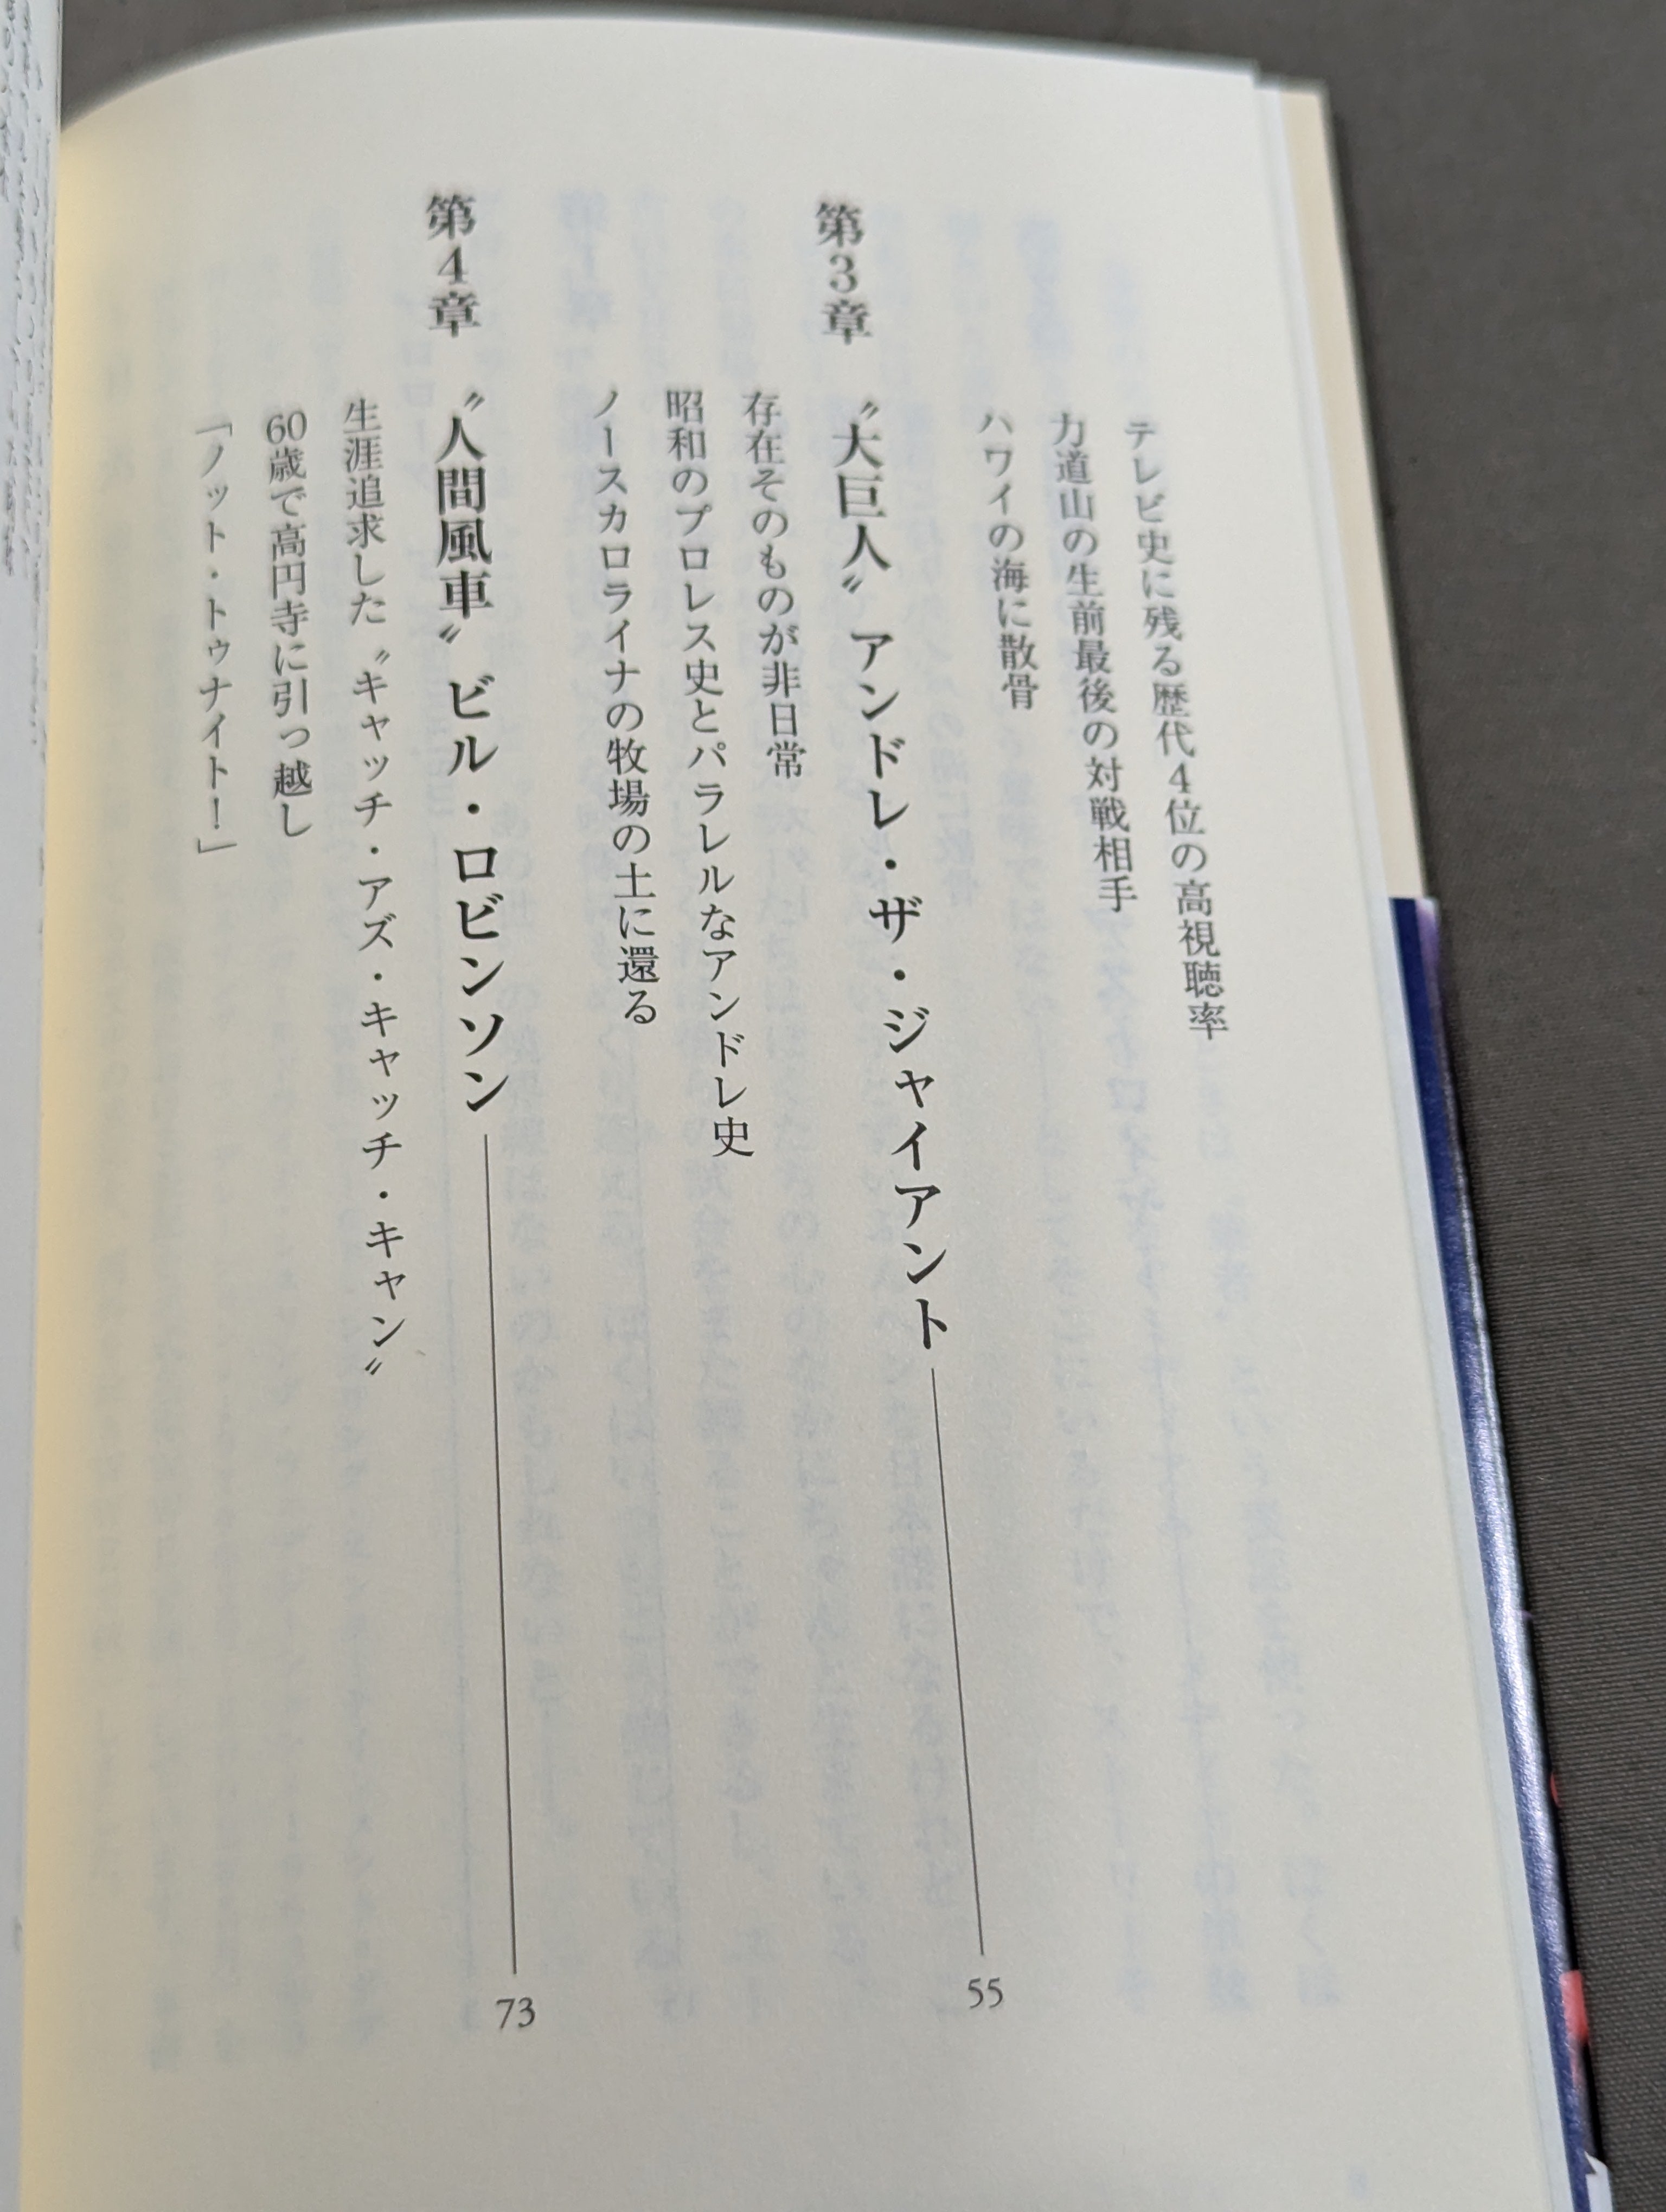 テレビ史に残る歴代4位の高視聴率
力道山の生前最後の対戦相手
ハワイの海に散骨
第3章 〝大巨人〟アンドレ・ザ・ジャイアント 55
存在そのものが非日常
昭和のプロレス史とパラレルなアンドレ史
ノースカロライナの牧場の土に還る
第4章 〝人間風車〟ビル・ロビンソン 73
生涯追求した〝キャッチ・アズ・キャッチ・キャン〟
60歳で高円寺に引っ越し
「ノット・トゥナイト！」